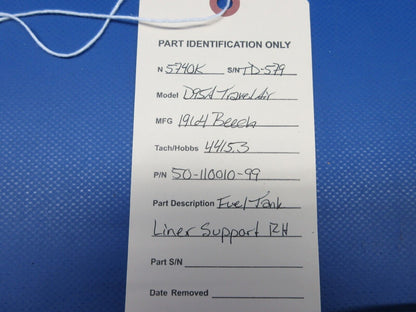 PART IDENTIFICATION ONLY
N 5740K S/N TD-579
Model D95A Travel Air
MFG 1964 Beech
Tach/Hobbs 4415.3
P/N 50-110010-99
Part Description Fuel Tank
Liner Support RH
Part S/N
Date Removed